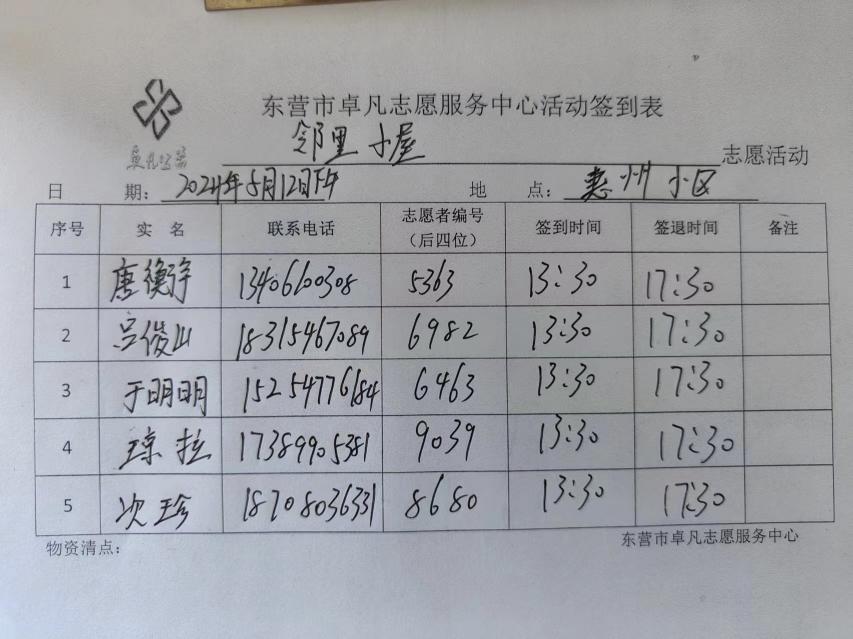 东营市卓凡志愿服务中心活动签到表
邻里小屋 志愿活动
卓凡公益
日 期: 2024年5月12日下午 地 点: 惠州小区
序号 实 名 联系电话 志愿者编号 (后四位) 签到时间 签退时间 备注
1 唐衡宇 13406600308 5363 13:30 17:30
2 吕俊山 18315467089 6982 13:30 17:30
3 于明明 15254776184 6463 13:30 17:30
4 琼拉 17389905381 9039 13:30 17:30
5 次珍 18708036331 8680 13:30 17:30
物资清点: 东营市卓凡志愿服务中心